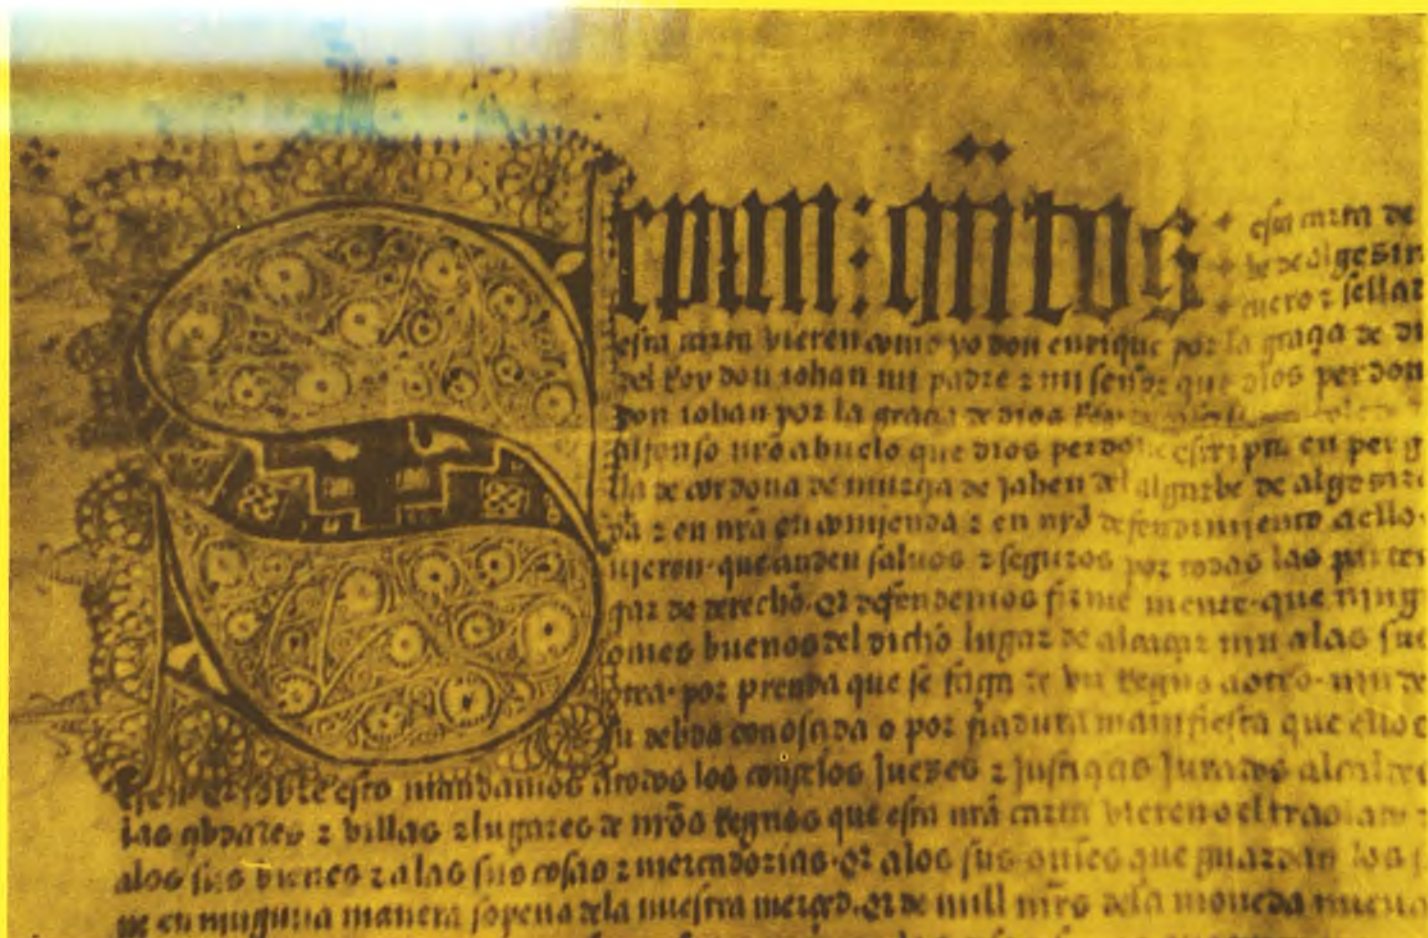 Sepan: quãtos
esta carta de
be de algezir
cuero z sellar
esta carta vieren como yo don enrique por la graçia de di
del Rey don iohan mi padre z mi señor que dios perdon
don iohan por la graçia de dios Rey
alfonso nr̃o abuelo que dios perdone escripta en perg
lla de cordoua de murçia de jahen del algarbe de algezira
da z en nr̃a encomienda z en nr̃o defendimiento aello
uieron que anden saluos z seguros por todas las partes
gar de derecho. Et defendemos firme mente que ning
omes buenos del dicho lugar de alcaraz nin alas su
tra por prenda que se faga de vn Regno aotro nin de
su debda conosçida o por fiadura manifiesta que ellos
Et sobre esto mandamos atodos los conçeios jueçes z justiçias jurados alcaldes
las çibdades z villas z lugares de nr̃os Regnos que esta nr̃a carta vieren o el traslado
alos sus bienes z alas sus cosas z mercadorias. Et alos sus omes que guardan los
de en ninguna manera sopena dela nuestra merçed. Et de mill mr̃s dela moneda nueua